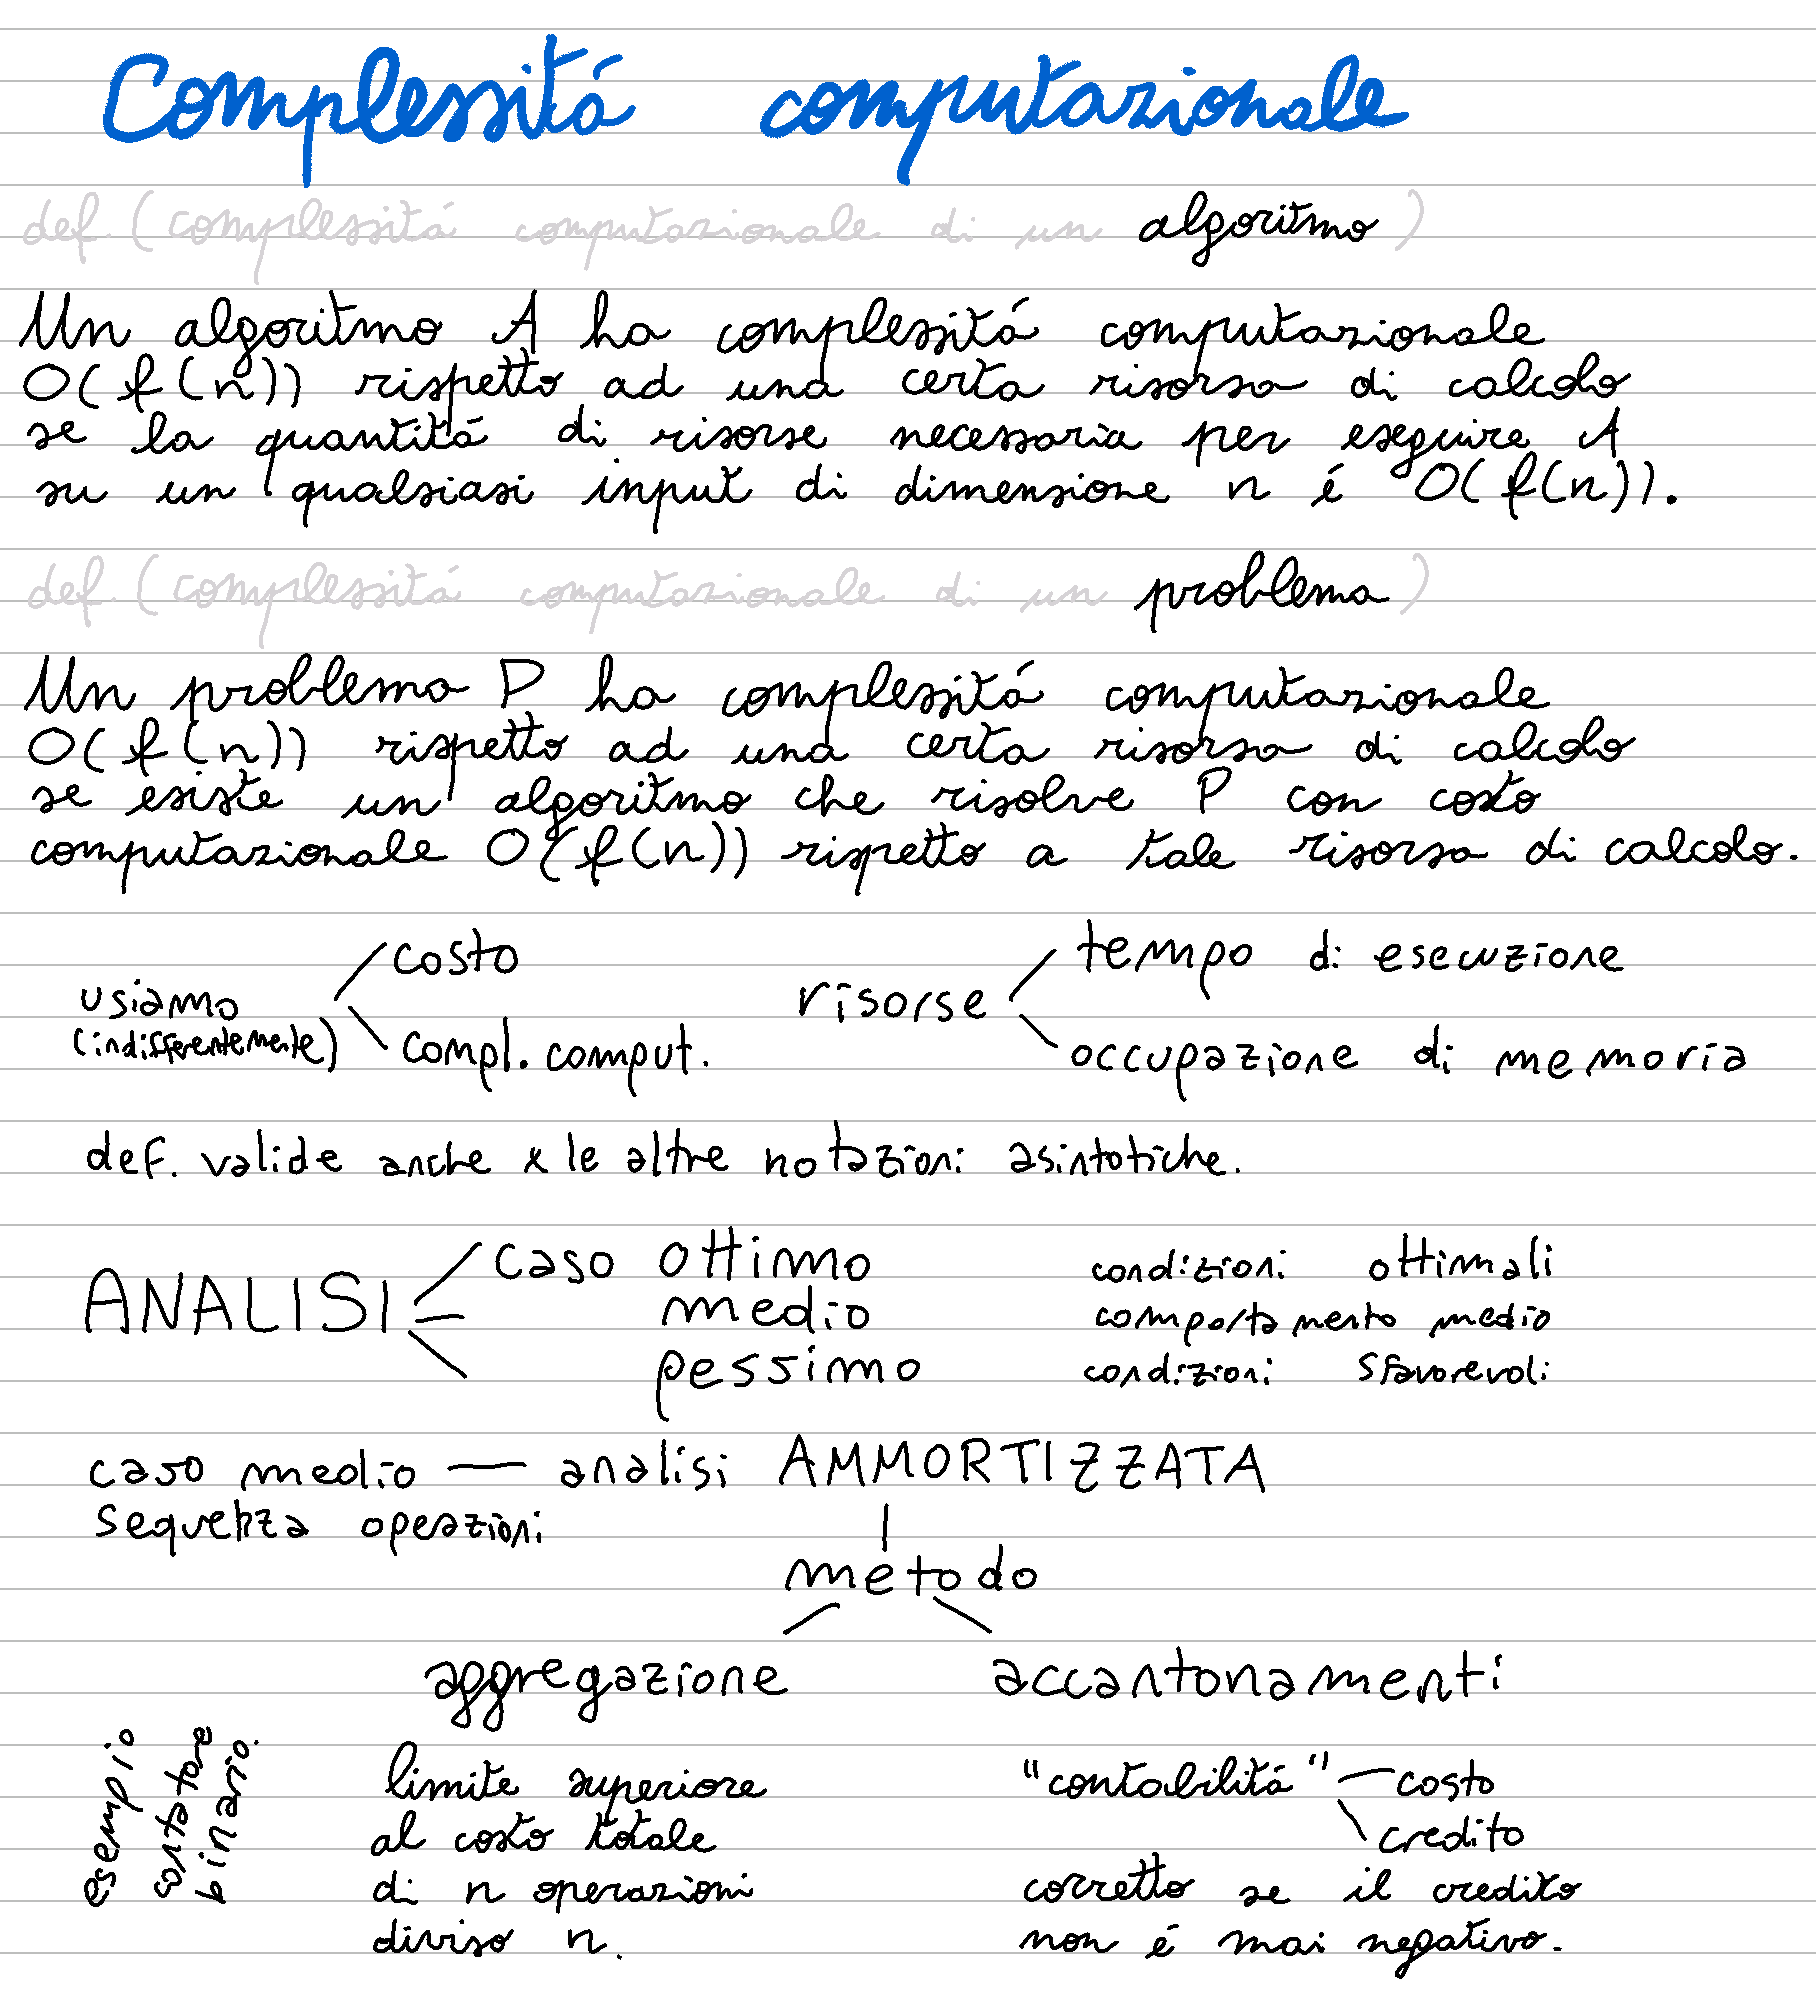 Complessitá computazionale
def. (complessitá computazionale di un algoritmo)
Un algoritmo A ha complessitá computazionale
O(f(n)) rispetto ad una certa risorsa di calcolo
se la quantitá di risorse necessaria per eseguire A
su un qualsiasi input di dimensione n é O(f(n)).
def. (complessitá computazionale di un problema)
Un problema P ha complessitá computazionale
O(f(n)) rispetto ad una certa risorsa di calcolo
se esiste un algoritmo che risolve P con costo
computazionale O(f(n)) rispetto a tale risorsa di calcolo.
usiamo
(indifferentemente)
costo
compl. comput.
risorse
tempo di esecuzione
occupazione di memoria
def. valide anche x le altre notazioni asintotiche.
ANALISI
caso ottimo condizioni ottimali
medio comportamento medio
pessimo condizioni sfavorevoli
caso medio — analisi AMMORTIZZATA
sequenza operazioni
metodo
aggregazione
accantonamenti
esempio
contatore
binario.
limite superiore
al costo totale
di n operazioni
diviso n.
"contabilitá" costo
credito
corretto se il credito
non é mai negativo.